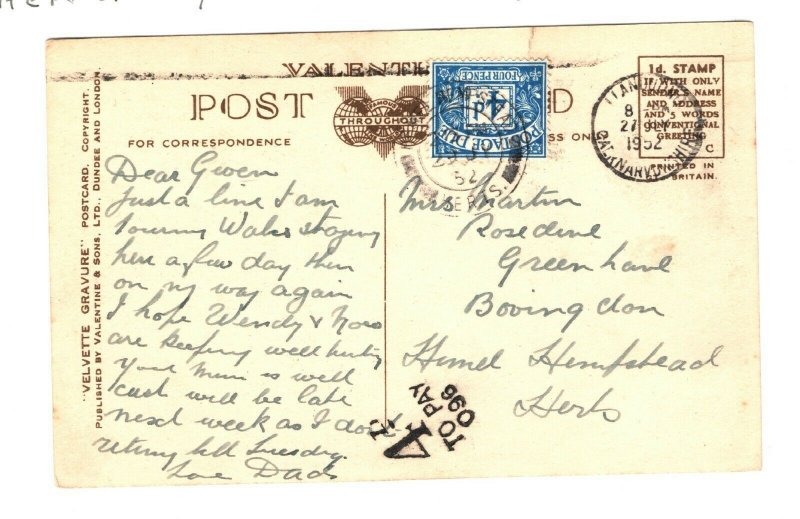 VALENTI
POST D
FAMOUS
THROUGHOUT
FOR CORRESPONDENCE
ESS ONLY
FOUR PENCE
4 D
POSTAGE DUE
52
HERTS.
1d. STAMP
IF WITH ONLY
SENDER'S NAME
AND ADDRESS
AND 5 WORDS
CONVENTIONAL
GREETING
C
PRINTED IN
BRITAIN.
8
27
1952
CAERNARVONSHIRE
"VELVETTE GRAVURE" POSTCARD. COPYRIGHT.
PUBLISHED BY VALENTINE & SONS, LTD., DUNDEE AND LONDON.
Dear Gwen
Just a line I am
touring Wales staying
here a few day then
on my way again
I hope Wendy &
are keeping well
your Mum is well
will be late
next week as I don't
till Tuesday.
Love Dad
Mrs Martin
Rosedene
Green Lane
Bovingdon
Himel Hempstead
Herts
4D
TO PAY
096